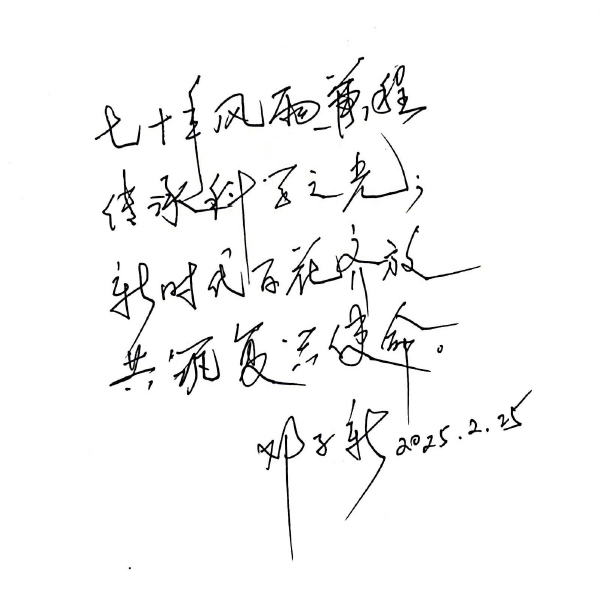 七十年风雨兼程
传承科学之光；
新时代百花齐放
共赴复兴使命。
邓子新 2025.2.25